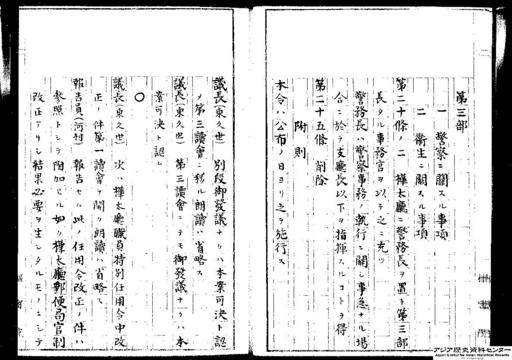 第三部
一 警察ニ關スル事項
二 衞生ニ關スル事項
第二十條ノ二 樺太廳ニ警務長ヲ置キ第三部
長タル事務官ヲ以テ之ニ充ツ
警務長ハ警察事務ノ執行ニ關シ事急ナル場
合ニ於テ支廳長以下ヲ指揮スルコトヲ得
第二十五條 削除
附則
本令ハ公布ノ日ヨリ之ヲ施行ス
議長(東久世) 別段御發議ナケレハ本案可決ト認
メ第三讀會ニ移ル朗讀ハ省略ス
議長(東久世) 第三讀會ニテモ御發議ナケレハ本
案可決ト認ム
○
議長(東久世) 次ハ樺太廳職員特別任用令中改
正ノ件第一讀會ヲ開ク朗讀ハ省略ス
報告員(河村) 報告セル此ノ任用令改正ノ件ハ
參照トシテ附加セル如ク樺太廳郵便局官制
改正アリシ結果必要ヲ生シタルモノニシテ
アジア歴史資料センター
Japan Center for Asian Historical Records